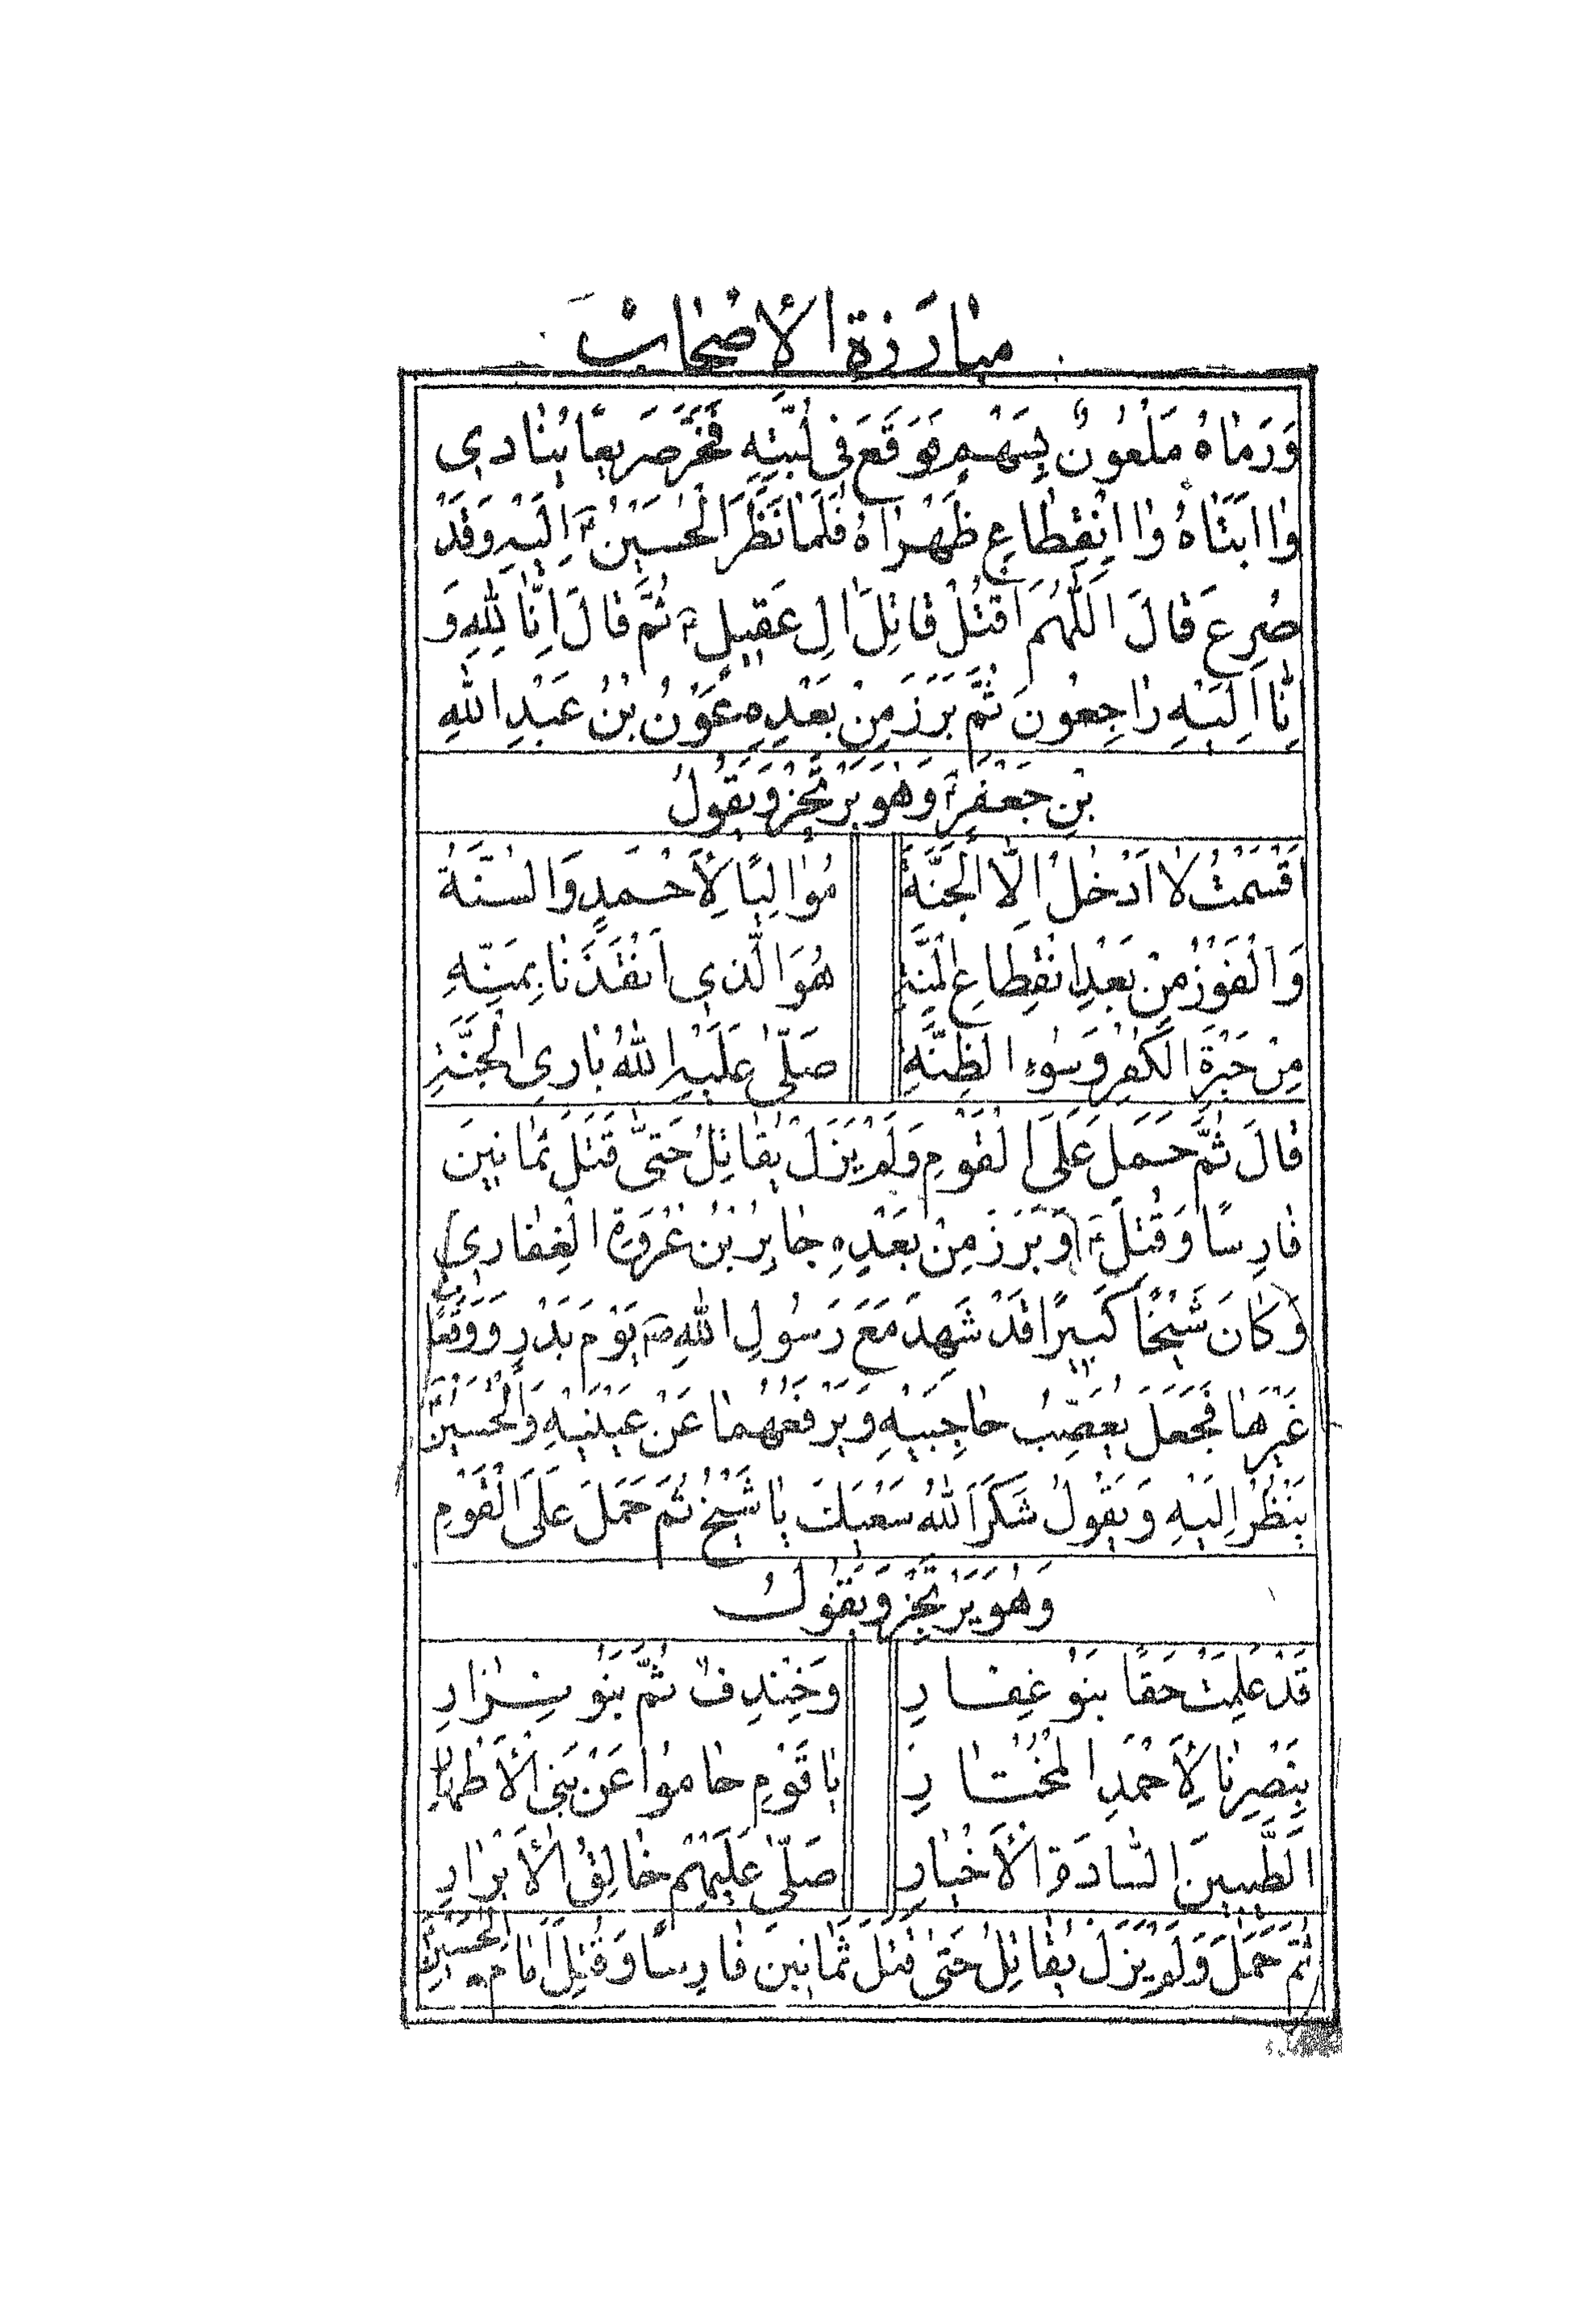 مبارزة الأصحاب
وَرَمَاهُ مَلْعُونٌ بِسَهْمٍ فَوَقَعَ فِي لَبَّتِهِ فَخَرَّ صَرِيعًا يُنَادِي
وَا اَبَتَاهُ وَا اِنْقِطَاعِ ظَهْرَاهُ فَلَمَّا نَظَرَ الْحُسَيْنُ ؑ اِلَيْهِ وَقَدْ
صُرِعَ قَالَ اَللّٰهُمَّ اقْتُلْ قَاتِلَ الِ عَقِيلٍ ؑ ثُمَّ قَالَ اِنَّا لِلّٰهِ وَ
اِنَّا اِلَيْهِ رَاجِعُونَ ثُمَّ بَرَزَ مِنْ بَعْدِهِ عَوْنُ بْنُ عَبْدِ اللهِ
بْنِ جَعْفَرٍ ؑ وَهُوَ يَرْتَجِزُ وَيَقُولُ
اَقْسَمْتُ لَا اَدْخُلُ اِلَّا الْجَنَّةَ مُوَالِيًا لِأَحْمَدٍ وَالسُّنَّةْ
وَالْفَوْزُ مِنْ بَعْدِ انْقِطَاعِ الْمِنَّةِ هُوَ الَّذِي اَنْقَذَنَا بِمَنِّهِ
مِنْ حَيْرَةِ الْكُفْرِ وَسُوءِ الظِّنَّةِ صَلَّى عَلَيْهِ اللهُ بَارِي الْجَنَّةِ
قَالَ ثُمَّ حَمَلَ عَلَى الْقَوْمِ وَلَمْ يَزَلْ يُقَاتِلُ حَتَّى قَتَلَ ثَمَانِينَ
فَارِسًا وَقُتِلَ ؑ (وَبَرَزَ مِنْ بَعْدِهِ جَابِرُ بْنُ عُرْوَةَ الْغِفَارِي)
(وَكَانَ شَيْخًا كَبِيرًا قَدْ شَهِدَ مَعَ رَسُولِ اللهِ ؐ يَوْمَ بَدْرٍ وَوَقَعَا
غَيْرَهَا فَجَعَلَ يُعَصِّبُ حَاجِبَيْهِ وَيَرْفَعُهُمَا عَنْ عَيْنَيْهِ وَالْحُسَيْنُ
يَنْظُرُ اِلَيْهِ وَيَقُولُ شَكَرَ اللهُ سَعْيَكَ يَا شَيْخُ ثُمَّ حَمَلَ عَلَى الْقَوْمِ
وَهُوَ يَرْتَجِزُ وَيَقُولُ
قَدْ عَلِمَتْ حَقًا بَنُو غِفَارِ وَخِنْدِفٌ ثُمَّ بَنُو نِزَارِ
بِنَصْرِنَا لِأَحْمَدِ الْمُخْتَارِ يَا قَوْمِ حَامُوا عَنْ بَنِي الْأَطْهَارِ
اَلطَّيِّبِينَ السَّادَةِ الْأَخْيَارِ صَلَّى عَلَيْهِمْ خَالِقُ الْأَبْرَارِ
ثُمَّ حَمَلَ وَلَمْ يَزَلْ يُقَاتِلُ حَتَّى قَتَلَ ثَمَانِينَ فَارِسًا وَقُتِلَ اَمَامَ الْحُسَيْنِ ؑ